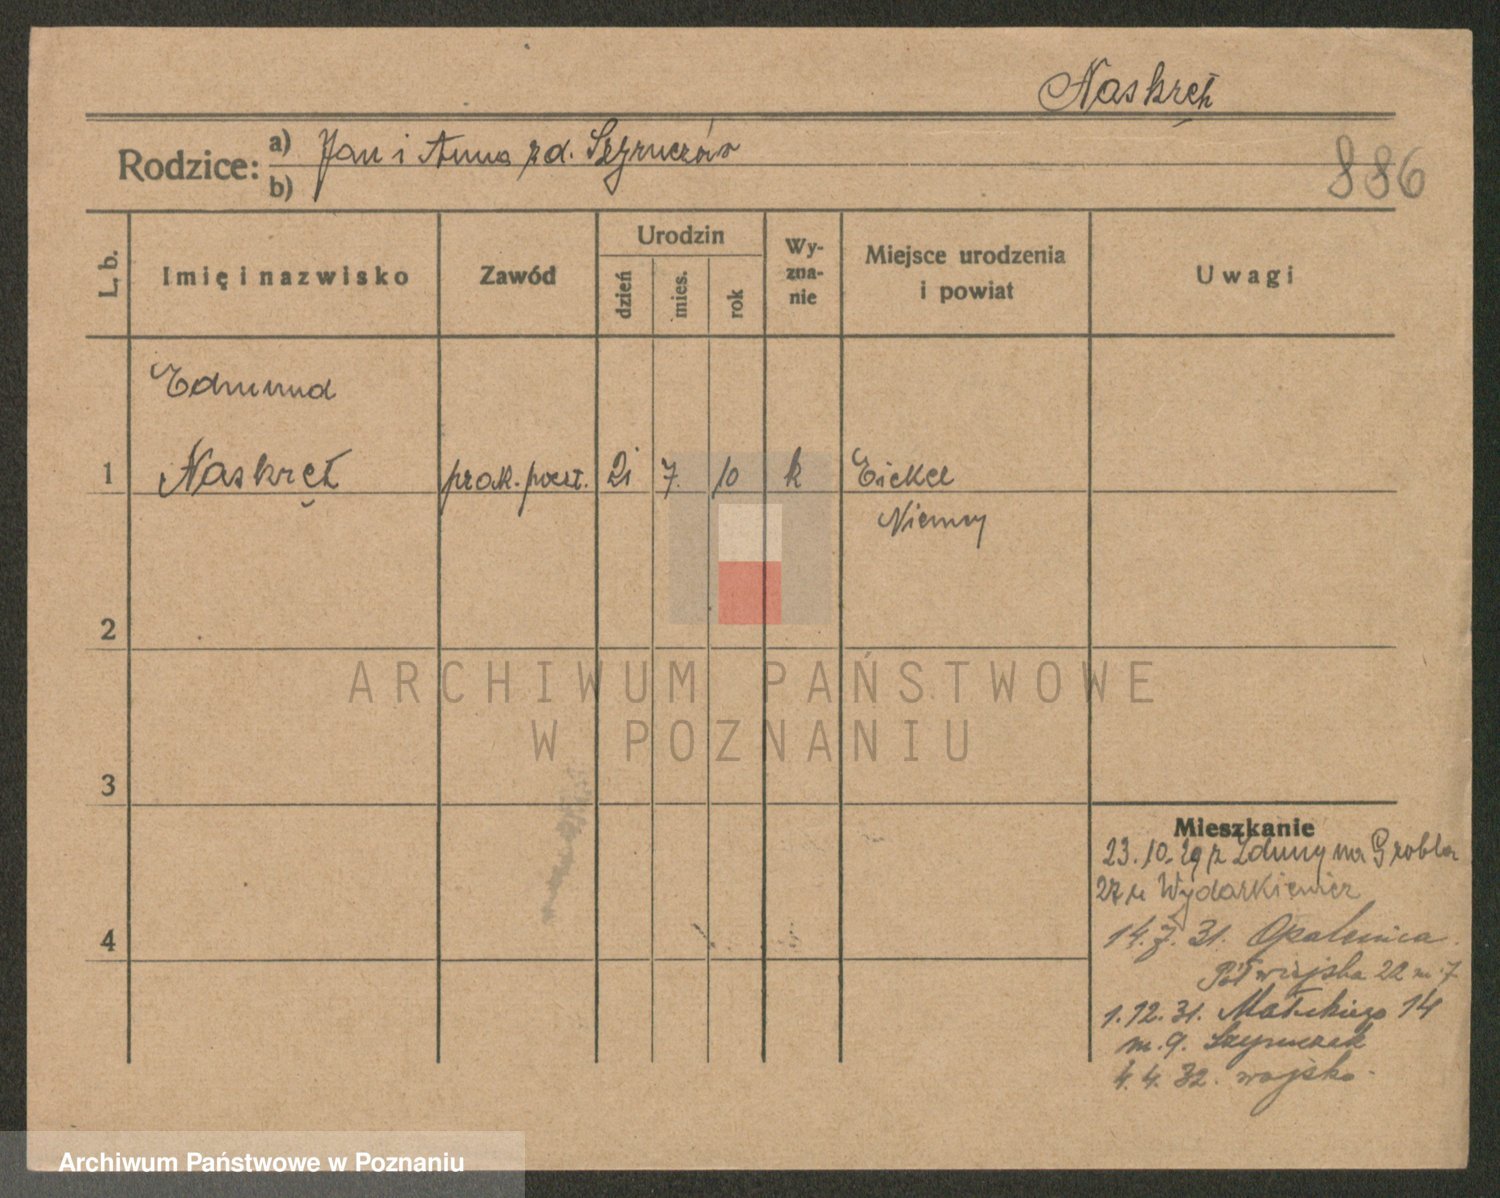 Naskręt
Rodzice: a) Jan i Anna z d. Szymczak
b)
886
L. b.
Imię i nazwisko
Zawód
Urodzin
dzień
mies.
rok
Wy-
zna-
nie
Miejsce urodzenia
i powiat
Uwagi
Edmund
1 Naskręt prak. poczt. 21 7. 10 k Eickel
Niemcy
2
3
4
Mieszkanie
23.10.29 z Zduny na Grobla
27 u Wydarkiewicz
14.7.31. Opalenica
Półwiejska 22 m. 7
1.12.31. Małeckiego 14
m. 9. Szymczak
4.4.32. wojsko.
ARCHIWUM PAŃSTWOWE
W POZNANIU
Archiwum Państwowe w Poznaniu